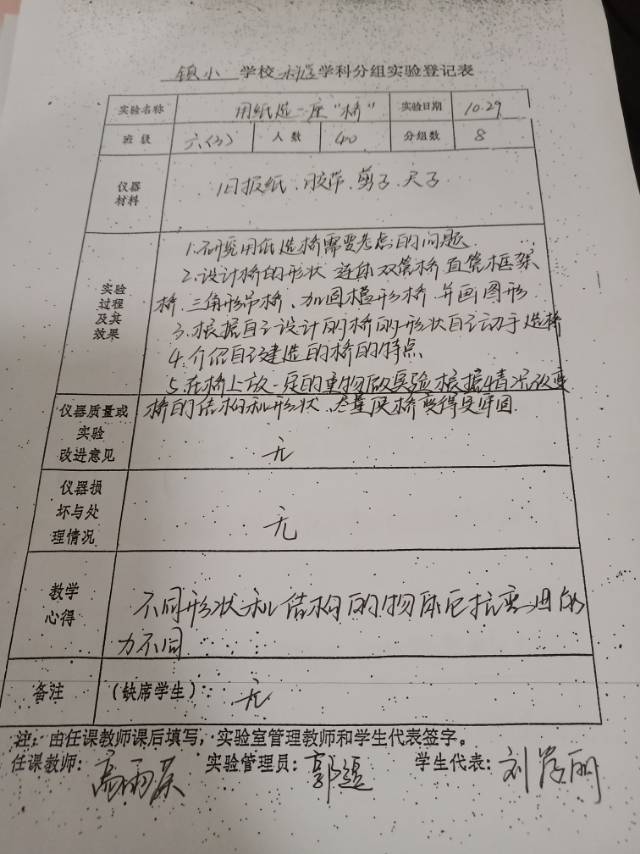 镇小 学校 科学 学科分组实验登记表
实验名称 用纸造一座"桥" 实验日期 10.29
班级 六(3) 人数 40 分组数 8
仪器材料 旧报纸、胶带、剪子、尺子
实验过程及其效果
1.研究用纸造桥需要考虑的问题
2.设计桥的形状 双管桥 直管框架
桥、三角形吊桥、加固模形桥 并画图形
3.根据自己设计的桥的形状自己动手造桥
4.介绍自己建造的桥的特点
5.在桥上放一定的重物做实验根据情况改变
桥的结构和形状,尽量使桥变得更牢固.
仪器质量或实验改进意见 无
仪器损坏与处理情况 无
教学心得 不同形状和结构的物体抗弯曲的
力不同
备注 (缺席学生): 无
注:由任课教师课后填写,实验室管理教师和学生代表签字。
任课教师: 高雨 实验管理员: 郭 学生代表: 刘 丽